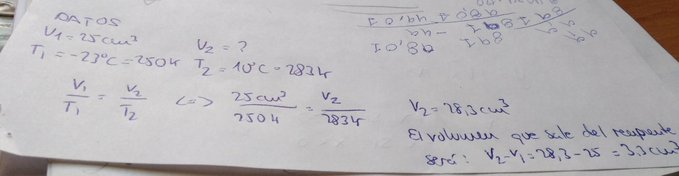 DATOS
V1=25cm³
T1=-23ºC=250K
V2=?
T2=10ºC=283K
V1/T1=V2/T2 <=> 25cm³/250K=V2/283K
V2=28,3cm³
El volumen que sale del recipiente
será: V2-V1=28,3-25=3,3cm³